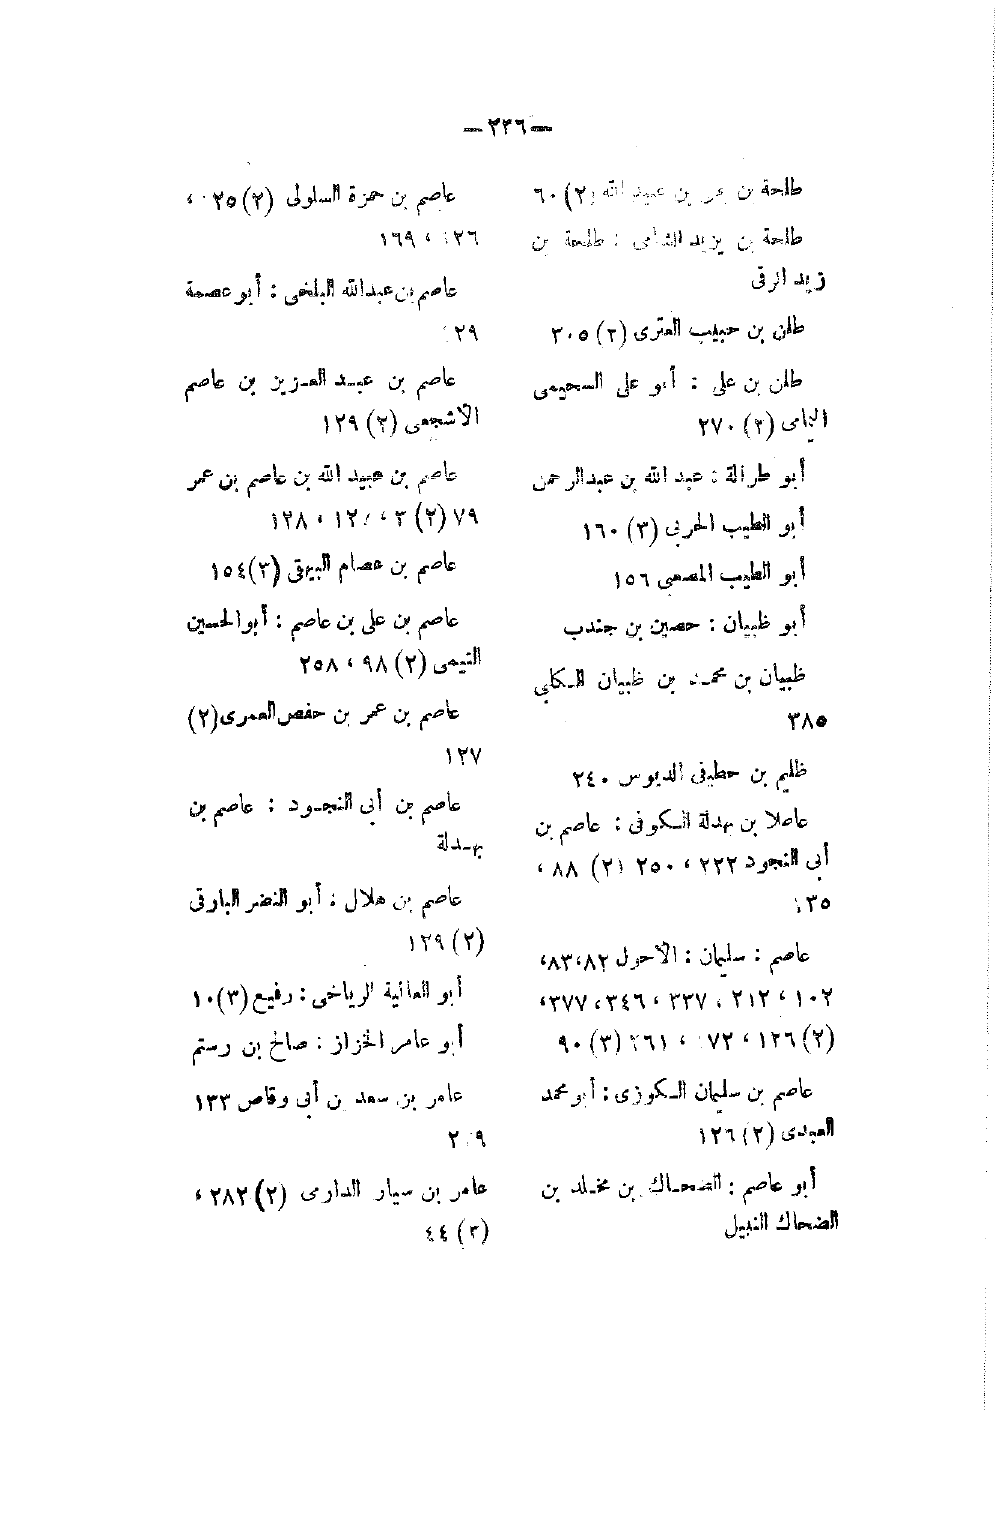 —٢٢٦—
طلحة بن عمر بن عبيد الله (٢) ٦٠
طلحة بن يزيد الشامى : طلحة بن
زيد الرقى
طلق بن حبيب العنزى (٢) ٣٠٥
طلق بن على : أبو على السحيمى
اليمامى (٢) ٢٧٠
أبو طوالة : عبد الله بن عبدالرحمن
أبو الطيب الحربى (٣) ١٦٠
أبو الطيب المصعبى ١٥٦
أبو ظبيان : حصين بن جندب
ظبيان بن محمد بن ظبيان الكلبى
٣٨٥
ظليم بن حطيط الدبوسى ٢٤٠
بن بهدلة الكوفى : عاصم بن
أبى النجود ٢٢٢ ، ٢٥٠ (٢) ٨٨ ،
١٣٥
عاصم : سليمان : الأحول ٨٢،٨٣،
١٠٢ ، ٢١٢ ، ٣٣٧ ، ٣٤٦ ،٣٧٧،
(٢) ١٢٦ ، ، (٣) ٩٠
عاصم بن سليمان الكوزى : أبو محمد
العبدى (٢) ١٢٦
أبو عاصم : الضحاك بن مخلد بن
الضحاك النبيل
عاصم بن حمزة السلولى (٢) ،
١٢٦ ، ١٦٩
عاصم بن عبدالله البلخى : أبو عصمة
عاصم بن عبد العزيز بن عاصم
الأشجعى (٢) ١٢٩
عاصم بن عبيد الله بن عاصم بن عمر
٧٩ (٢) ٣ ، ، ١٢٨
عاصم بن عصام البيهقى (٢) ١٥٤
عاصم بن على بن عاصم : أبوالحسين
التيمى (٢) ٩٨ ، ٢٥٨
عاصم بن عمر بن حفص العمرى (٢)
١٢٧
عاصم بن أبى النجود : عاصم بن
بهدلة
عاصم بن هلال : أبو النضر البارقى
(٢) ١٢٩
أبو العالية الرياحى : رفيع (٣) ١٠
أبو عامر الخزاز : صالح بن رستم
عامر بن سعد بن أبى وقاص ١٣٣
عامر بن سيار الدارمى (٢) ٢٨٢ ،
(٣) ٤٤